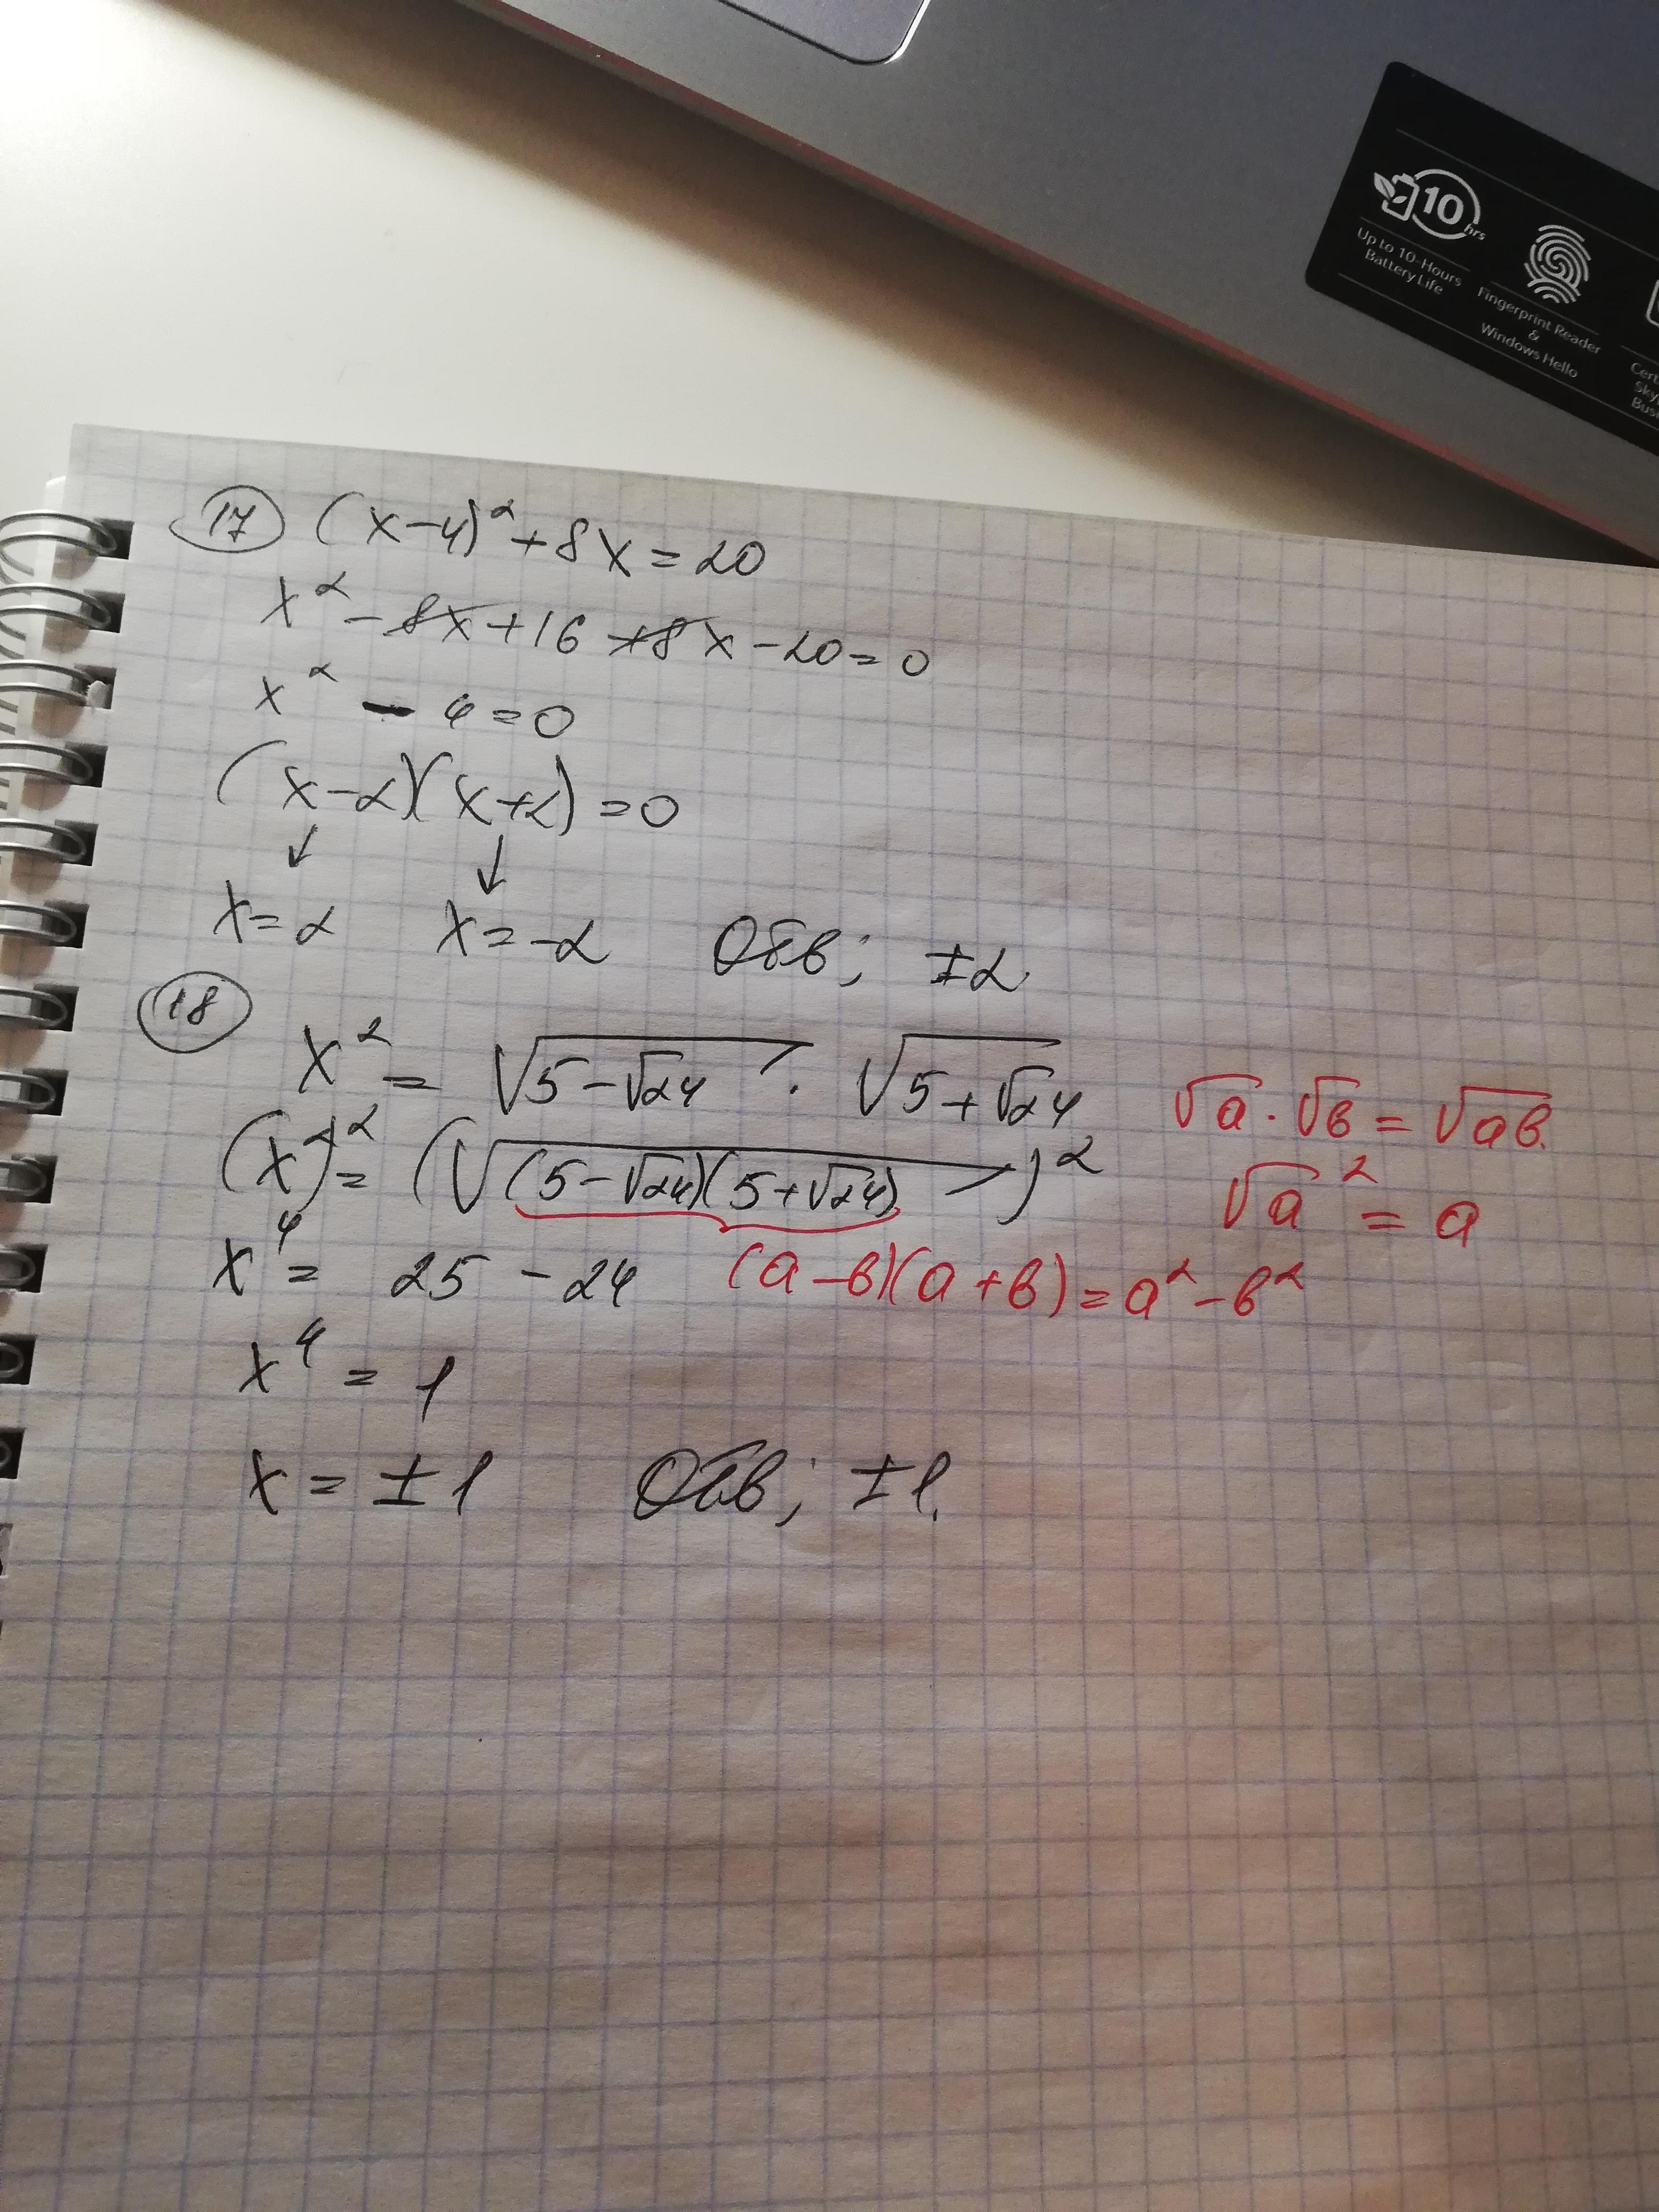 10 hrs
Up to 10-Hours
Battery Life
Fingerprint Reader
&
Windows Hello
17 (x-4)² + 8x = 20
x² - 8x + 16 + 8x - 20 = 0
x² - 4 = 0
(x-2)(x+2) = 0
↓ ↓
x = 2 x = -2 Отв; ±2
18
x² = √(5-√24) · √(5+√24) √a · √в = √ав.
(x²)² = (√((5-√24)(5+√24)))² √a² = a
x⁴ = 25 - 24 (a-в)(a+в) = a² - в²
x⁴ = 1
x = ±1 Отв; ±1.